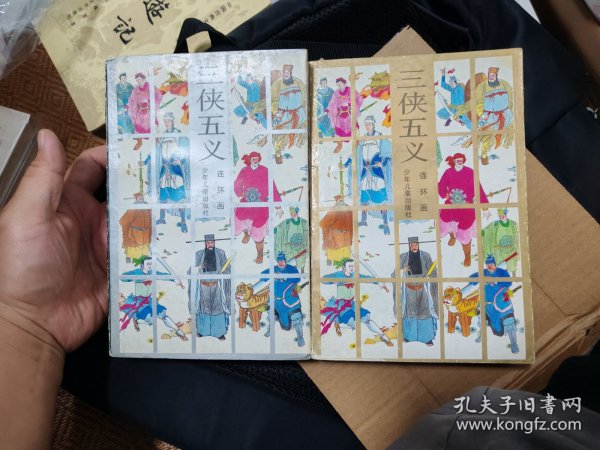 遊记
三侠五义
连环画
少年儿童出版社
三侠五义
连环画
少年儿童出版社
孔夫子旧书网
www.kongfz.com